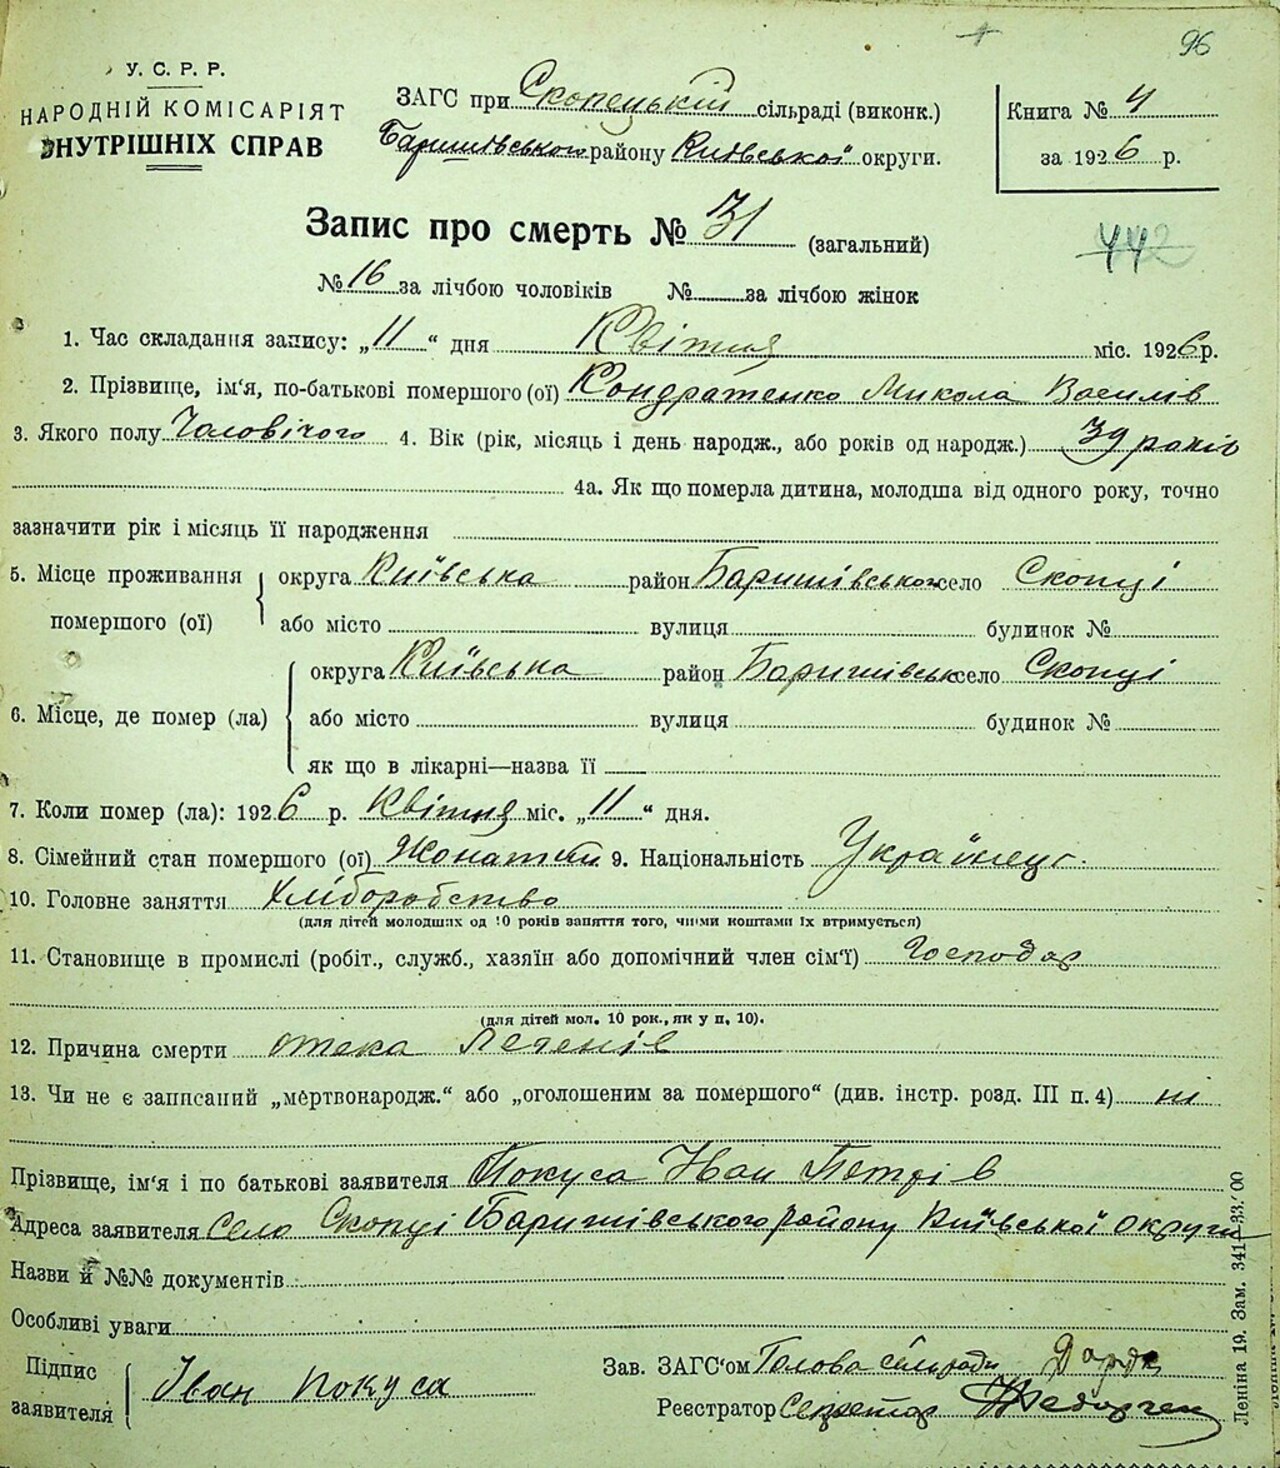 96
У. С. Р. Р.
НАРОДНІЙ КОМІСАРІЯТ
ВНУТРІШНІХ СПРАВ
ЗАГС при Скопецькій сільраді (виконк.)
Баришівського району Київської округи.
Книга № 4
за 1926 р.
Запис про смерть № 31 (загальний)
442
№ 16 за лічбою чоловіків № за лічбою жінок
1. Час складання запису: „11“ дня Квітня міс. 1926 р.
2. Прізвище, ім'я, по-батькові помершого (ої) Кондратенко Микола Василів
3. Якого полу Чоловічого 4. Вік (рік, місяць і день народж., або років од народж.) 39 років
4а. Як що померла дитина, молодша від одного року, точно
зазначити рік і місяць її народження
5. Місце проживання помершого (ої) округа Київська район Баришівського село Скопці
або місто вулиця будинок №
6. Місце, де помер (ла) округа Київська район Баришівськ село Скопці
або місто вулиця будинок №
як що в лікарні—назва її
7. Коли помер (ла): 1926 р. Квітня міс. „11“ дня.
8. Сімейний стан помершого (ої) Жонатий 9. Національність Українец.
10. Головне заняття Хліборобство
(для дітей молодших од 10 років заняття того, чиїми коштами їх втримується)
11. Становище в промислі (робіт., служб., хазяїн або допомічний член сім'ї) Господар
(для дітей мол. 10 рок., як у п. 10).
12. Причина смерти отека легенів
13. Чи не є записаний „мертвонародж.“ або „оголошеним за помершого“ (див. інстр. розд. III п. 4) ні
Прізвище, ім'я і по батькові заявителя Покуса Иван Петрів
Адреса заявителя Село Скопці Баришівського району Київської округи
Назви й №№ документів
Особливі уваги
Підпис заявителя Іван Покуса
Зав. ЗАГС'ом Голова сільради
Реєстратор Секретар
Леніна 19. Зам. 341